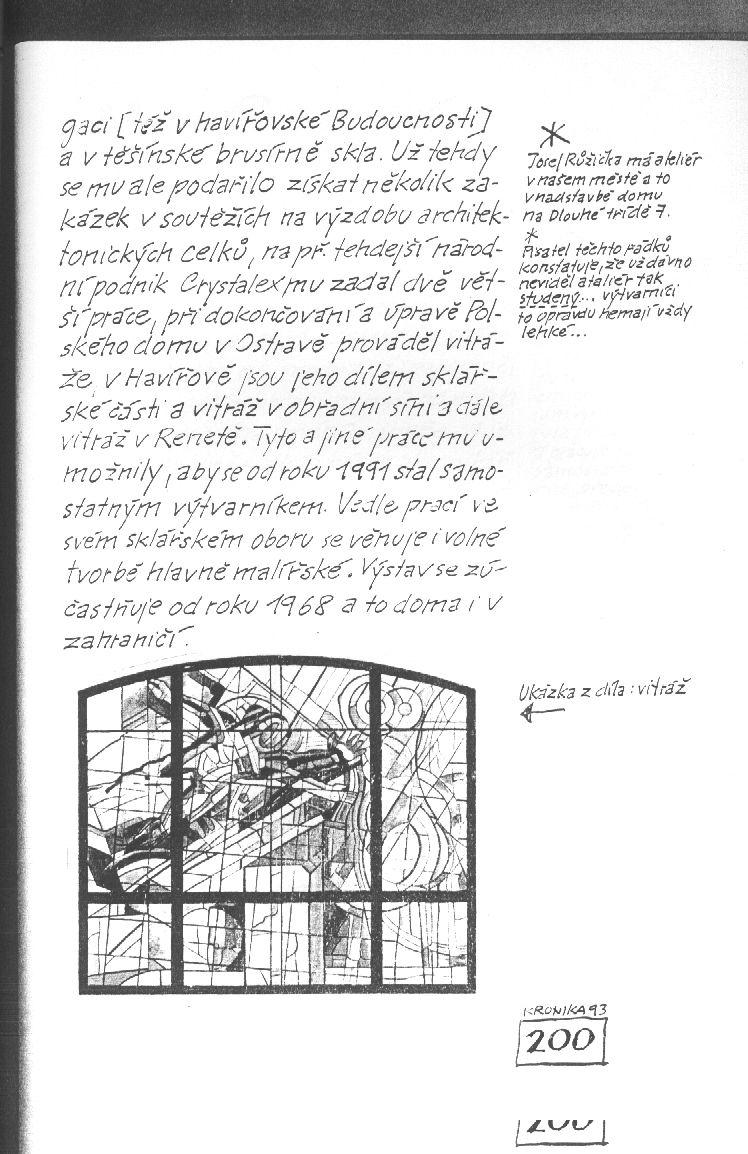 gaci [též v havířovské Budoucnosti]
a v těšínské brusírně skla. Už tehdy
se mu ale podařilo získat několik za-
kázek v soutěžích na výzdobu architek-
tonických celků, např. tehdejší národ-
ní podnik Crystalex mu zadal dvě vět-
ší práce, při dokončování a úpravě Pol-
ského domu v Ostravě prováděl vitrá-
že, v Havířově jsou jeho dílem sklář-
ské části a vitráž v obřadní síni a dále
vitráž v Renetě. Tyto a jiné práce mu u-
možnily, aby se od roku 1991 stal samo-
statným výtvarníkem. Vedle prací ve
svém sklářském oboru se věnuje i volné
tvorbě hlavně malířské. Výstav se zú-
častňuje od roku 1968 a to doma i v
zahraničí.
*
Josef Růžička má atelier
v našem městě a to
v nadstavbě domu
na Dlouhé třídě 7.
*
Pisatel těchto řádků
konstatuje, že už dávno
neviděl atalier tak
studený... výtvarníci
to opravdu nemají vždy
lehké...
Ukázka z díla: vitráž
KRONIKA 93
200
200